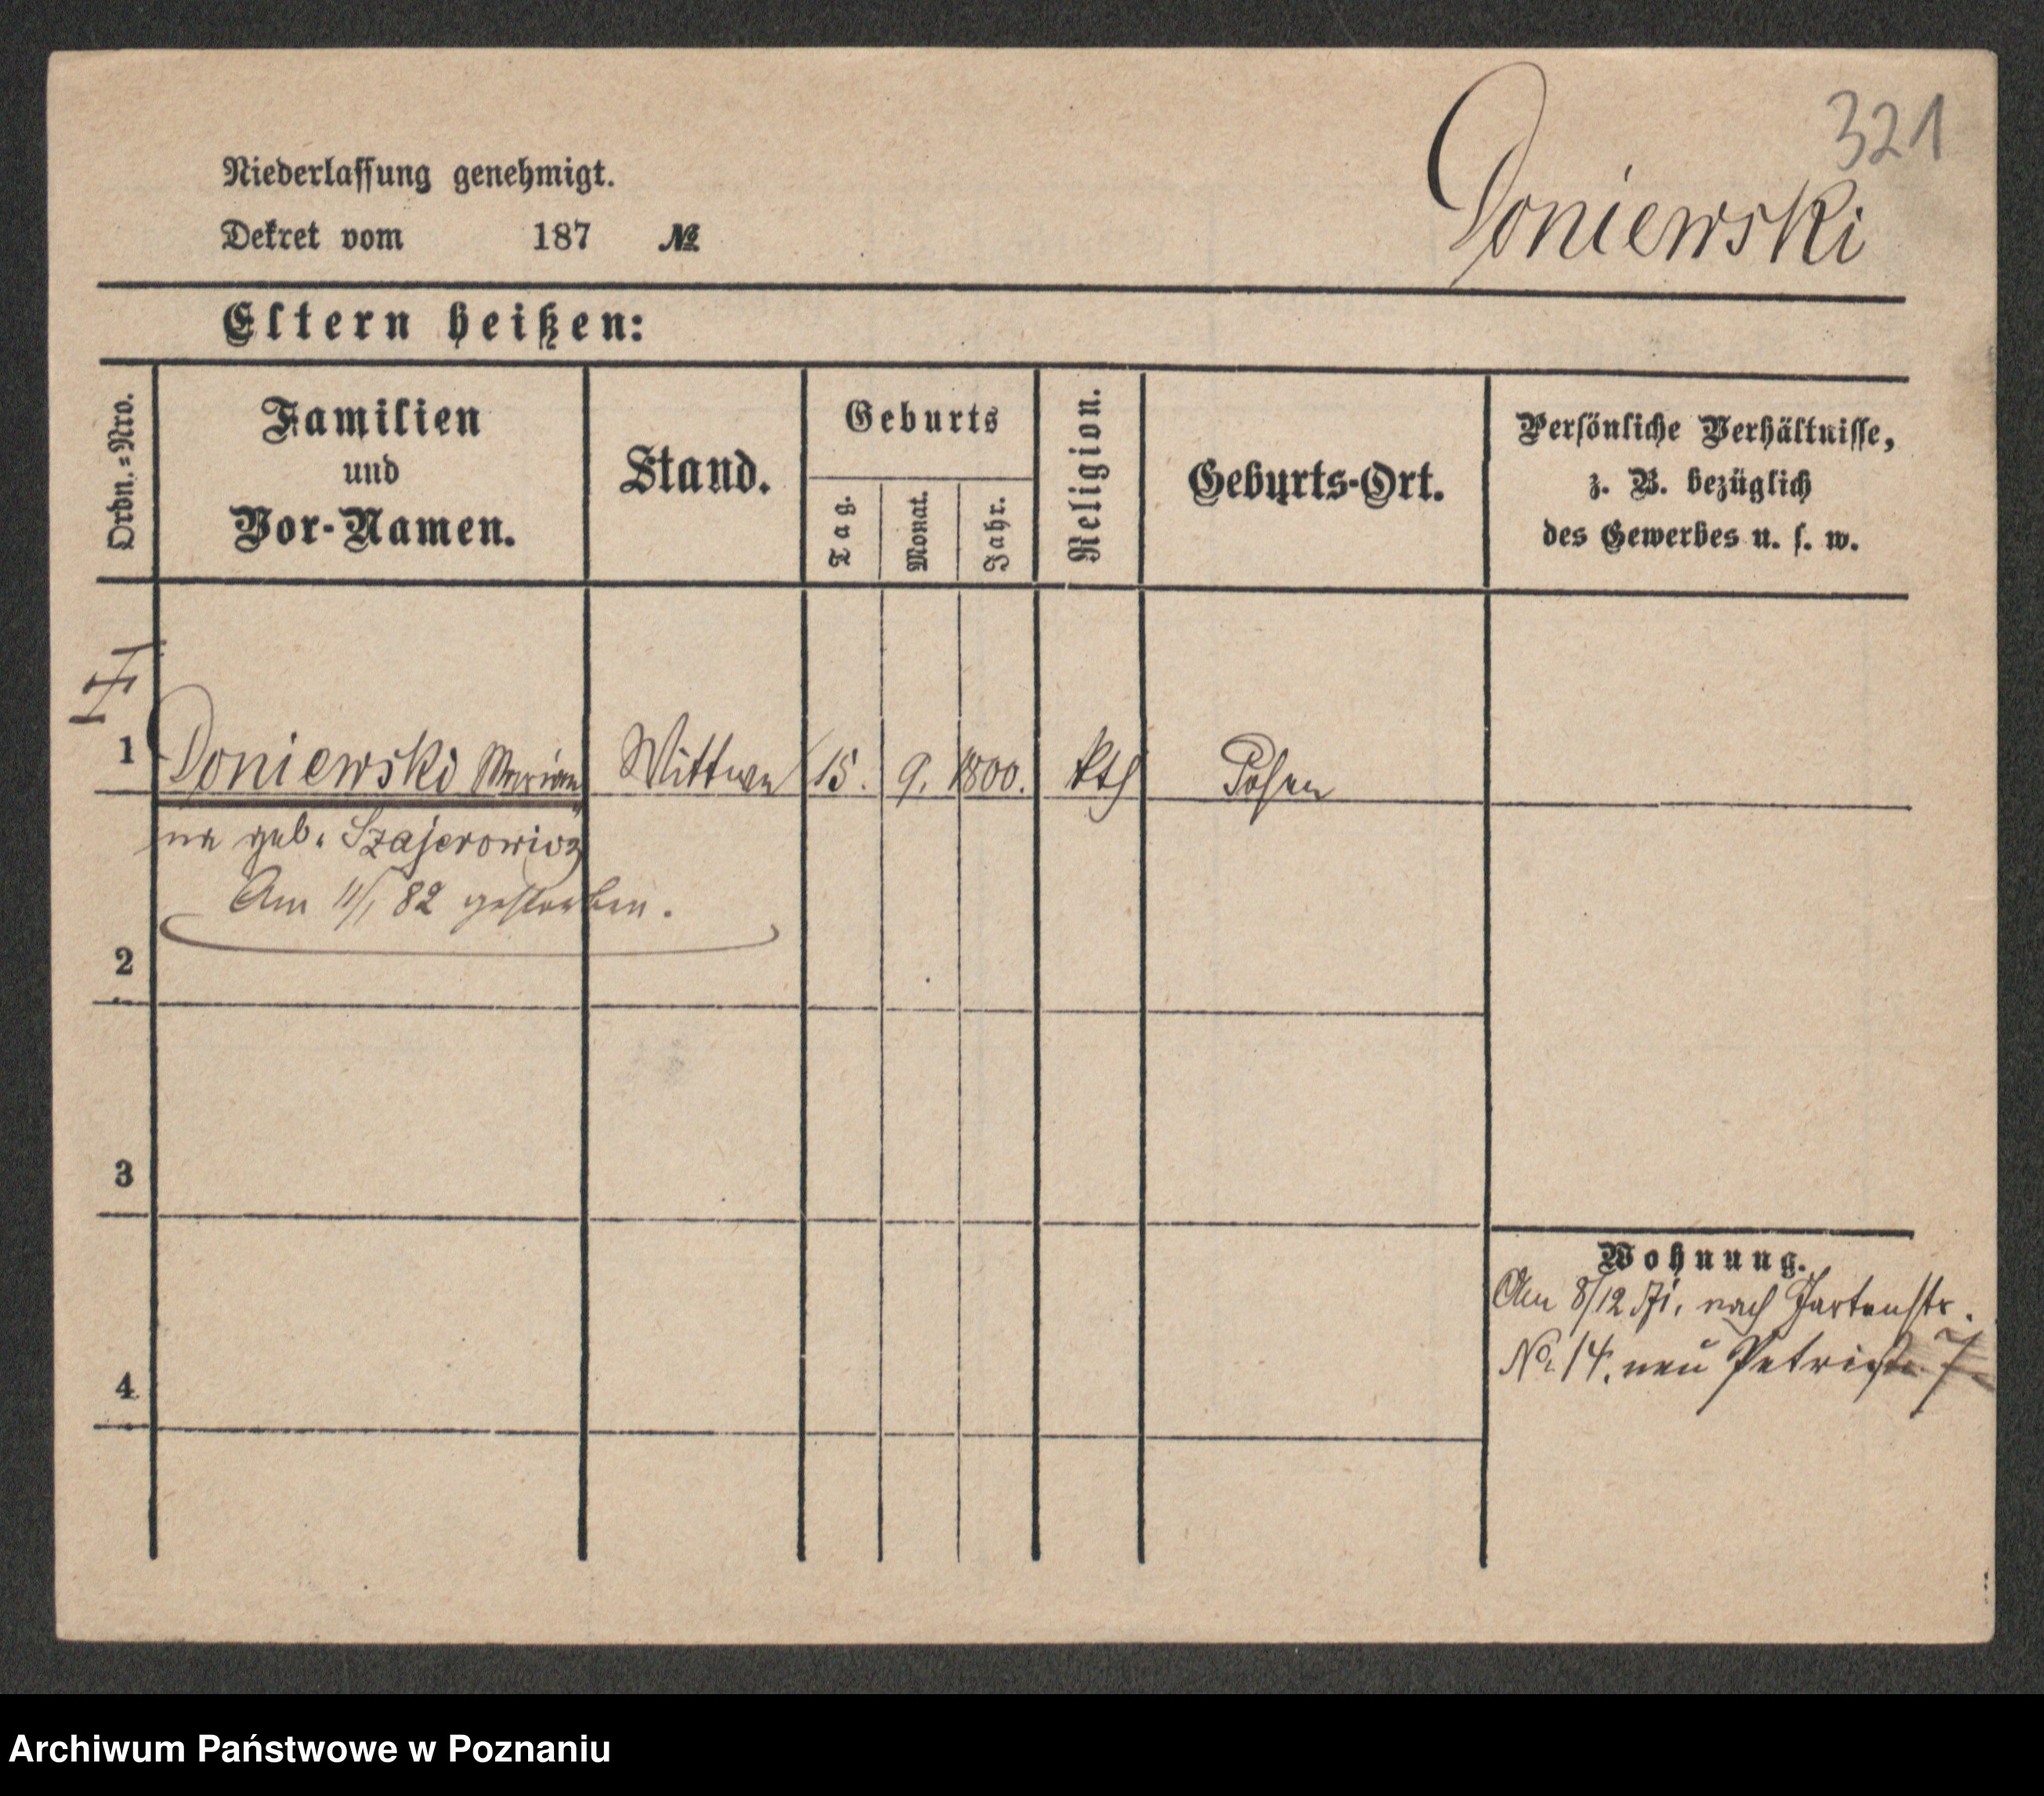 321
Doniewski
Niederlassung genehmigt.
Dekret vom 187 №
Eltern heißen:
Ordn.-Nro.
Familien
und
Vor-Namen.
Stand.
Geburts
Tag.
Monat.
Jahr.
Religion.
Geburts-Ort.
Persönliche Verhältnisse,
z. B. bezüglich
des Gewerbes u. s. w.
1 Doniewski Marian Wittwe 15. 9. 1800. kth Posen
na geb. Szajerowicz
Am 11/1 82 gestorben.
2
3
4
Wohnung.
Am 8/12 71. nach Gartenstr.
No. 14. neu Petristr. 7
Archiwum Państwowe w Poznaniu